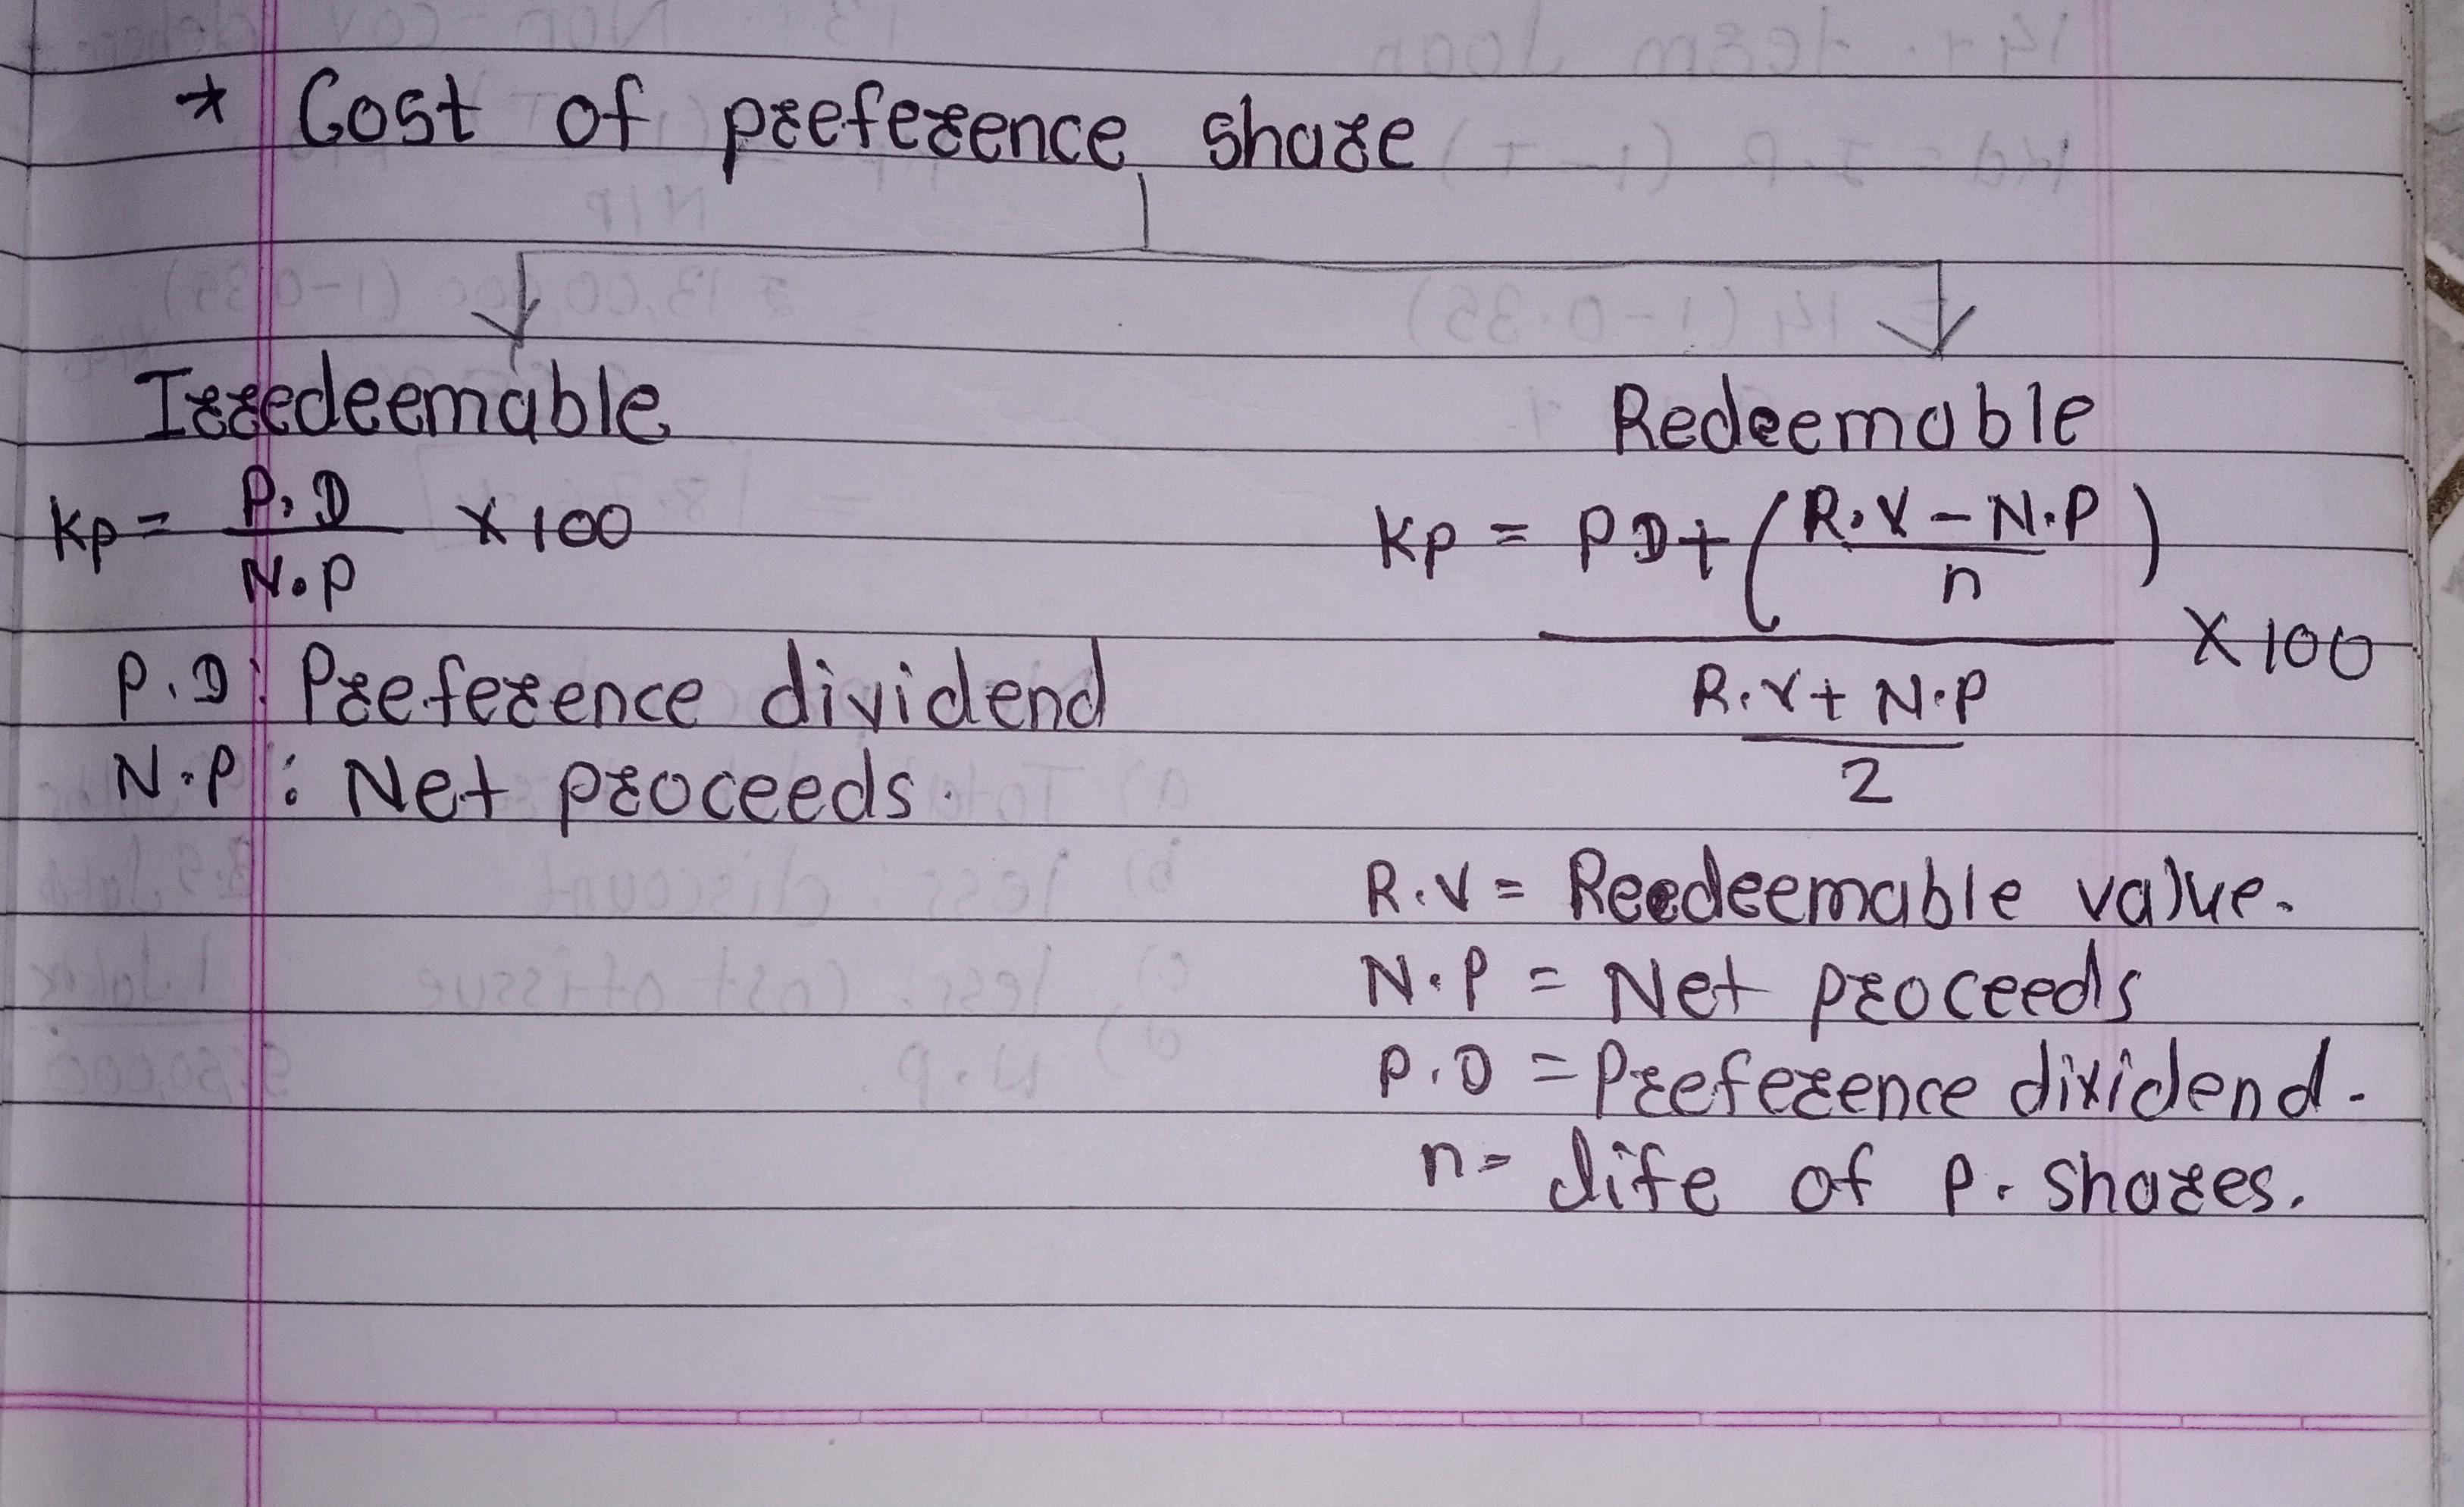 * Cost of preference share
Irredeemable
Kp = P.D / N.P × 100
P.D : Preference dividend
N.P : Net proceeds.
Redeemable
Kp = PD + (R.V - N.P / n) / (R.V + N.P / 2) × 100
R.V = Reedeemable value.
N.P = Net proceeds
P.D = Preference dividend.
n = life of P. shares.